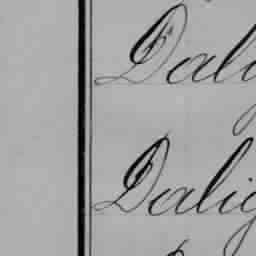 Dali
Dalig